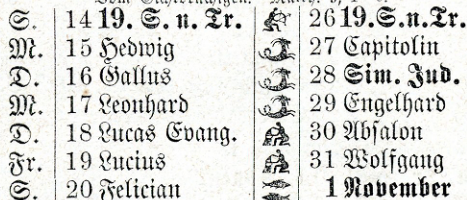 S. 14 19. S. n. Tr. 26 19. S. n. Tr.
M. 15 Hedwig 27 Capitolin
D. 16 Gallus 28 Sim. Jud.
M. 17 Leonhard 29 Engelhard
D. 18 Lucas Evang. 30 Absalon
Fr. 19 Lucius 31 Wolfgang
S. 20 Felician 1 November